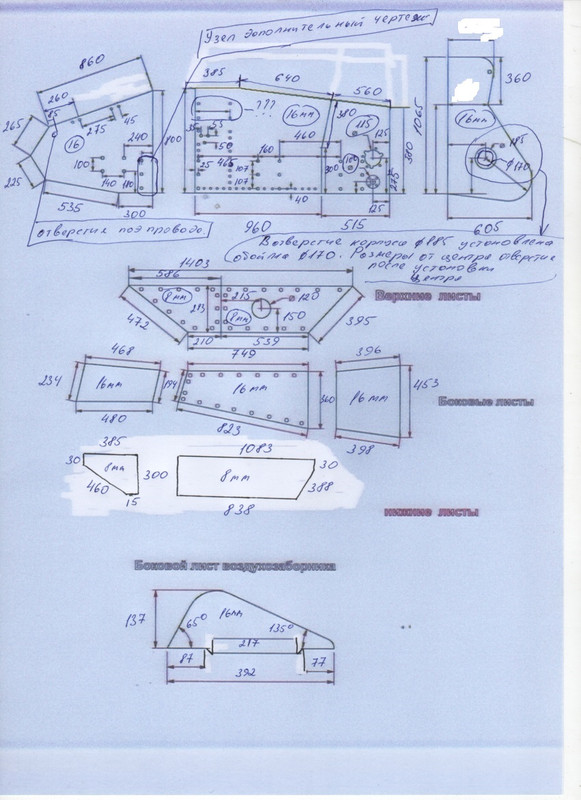 Узел дополнительный чертеж
860
260
85
275
45
265
16
240
100
140
110
225
535
300
отверстия под провода
385
640
560
???
16мм
380
115
125
55
50
460
465
160
800
25
107
107
300
100
225
500
40
125
960
515
360
1065
16мм
185
ф170
605
В отверстие корпуса ф185 установлена
обойма ф170. Размеры от центра отверстие
после установки
центра
1403
586
8мм
283
215
120
8мм
150
472
395
210
539
749
Верхние листы
468
396
234
16мм
194
16мм
360
16мм
453
480
823
398
Боковые листы
385
1083
30
8мм
300
8мм
30
460
388
15
838
нижние листы
Боковой лист воздухозаборника
137
16мм
65°
135°
217
87
77
392